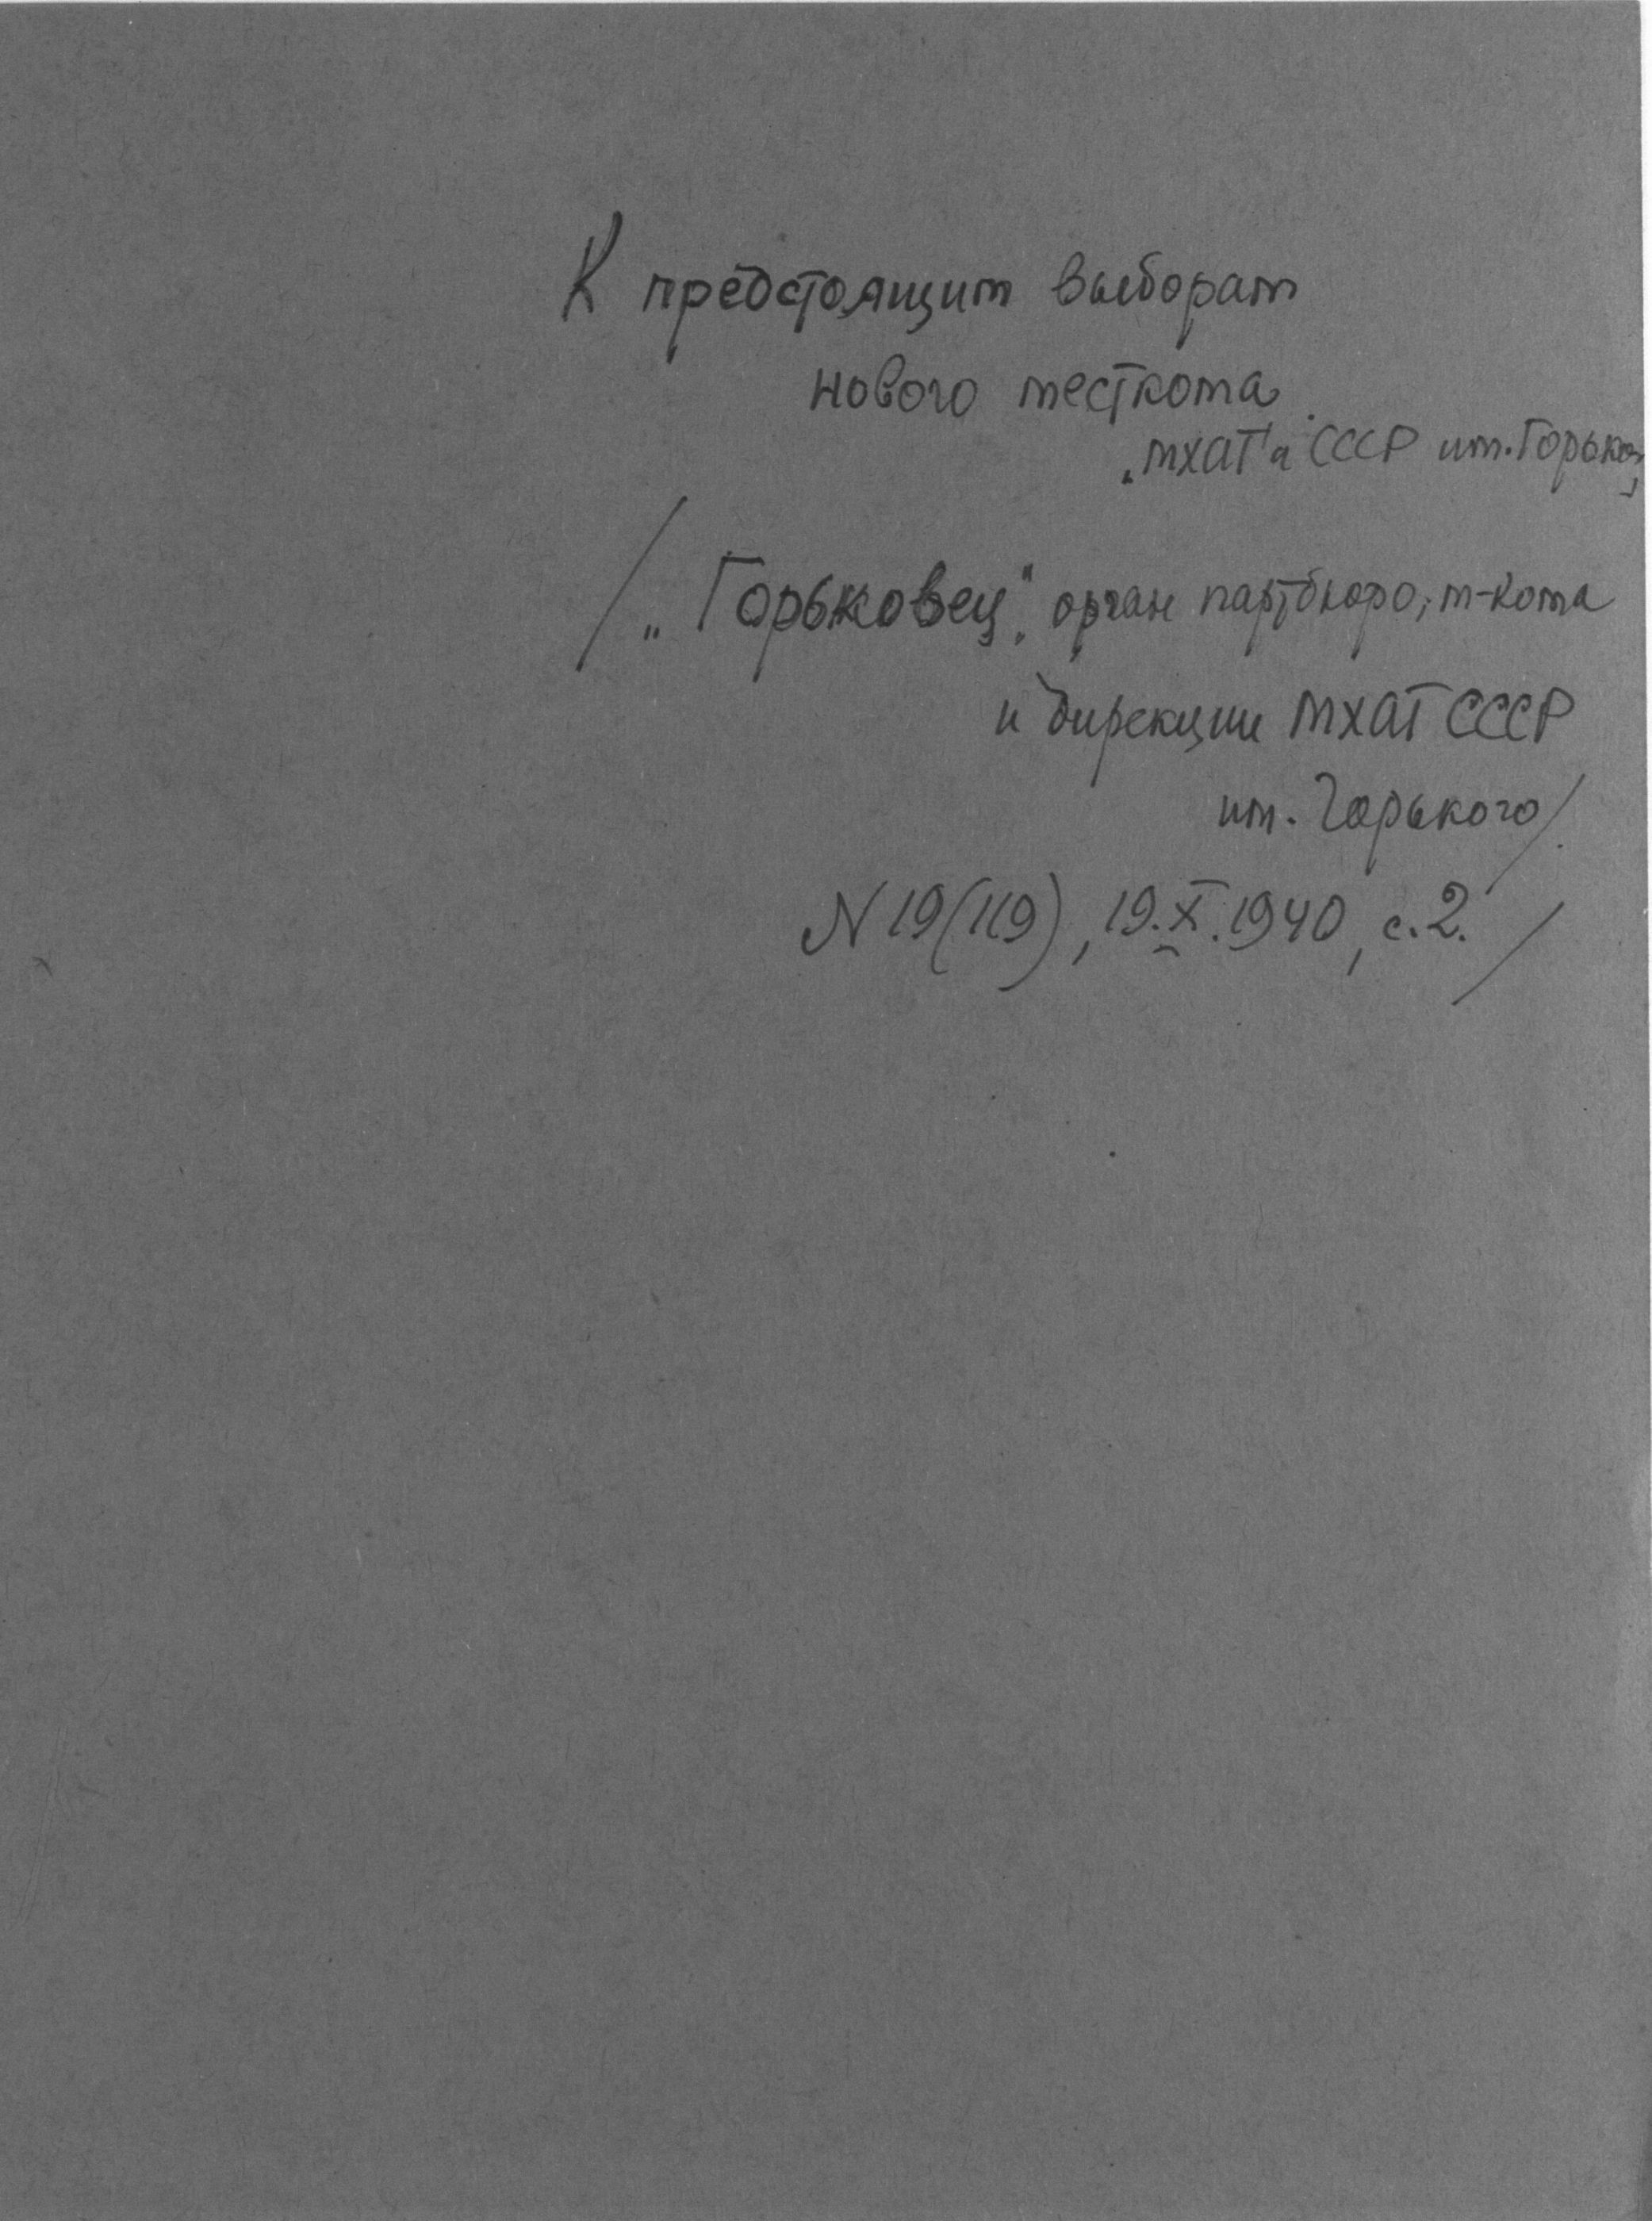 К предстоящим выборам
нового месткома
„МХАТ'а СССР им. Горького
/„Горьковец", орган партбюро, м-кома
и дирекции МХАТ СССР
им. Горького/.
N 19(119), 19.X.1940, с.2./